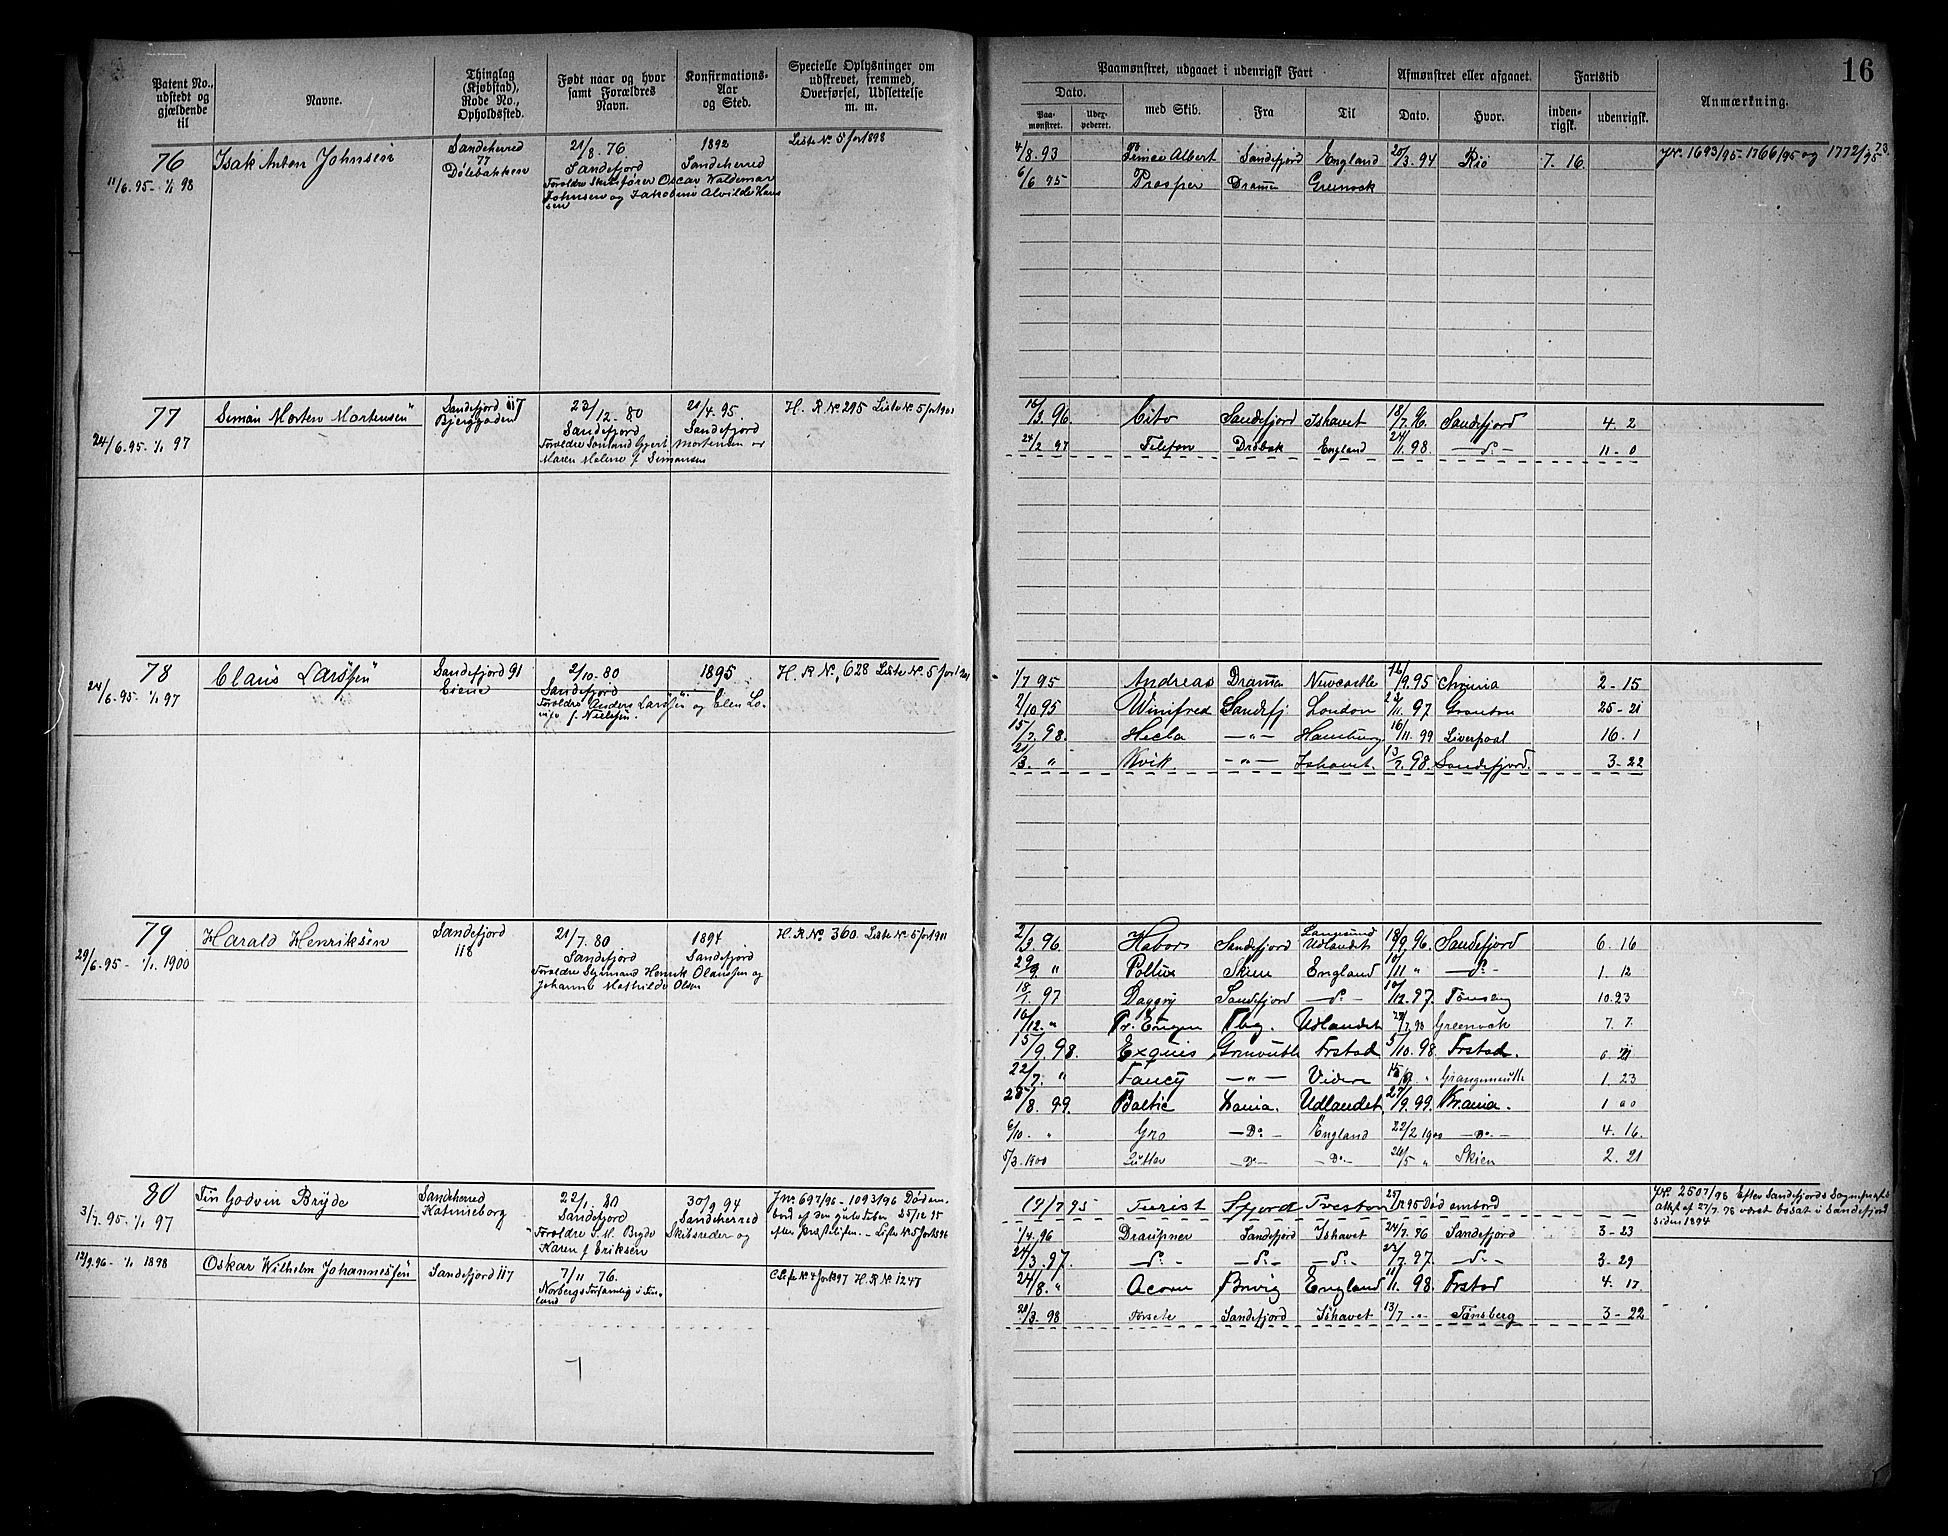 Patent No., udstedt og gjældende til
Navne.
Thinglag (Kjøbstad), Rode No., Opholdssted.
Født naar og hvor samt Forældres Navn.
Konfirmations-Aar og Sted.
Specielle Oplysninger om udskrevet, fremmed, Overførsel, Udslettelse m. m.
Paamønstret, udgaaet i udenrigsk Fart
Dato.
Paa-mønstret.
Uder-pederet.
med Skib.
Fra
Til
Afmønstret eller afgaaet.
Dato.
Hvor.
Fartstid
inden-rigsk.
udenrigsk.
Anmærkning.
16
76
11/6. 95 - 1/1 98
Isak Anton Johnsen
Sandeherred
77
Dølebakken
21/8. 76
Sandefjord
Forældre Skibsfører Oscar Waldemar
Johnsen og Jakobine Alvilde Han
sen
1892
Sandeherred
Liste No 5 for 1898
4/8. 93 Prinse Albert Sandefjord England 20/3. 94 Rio 7. 16.
Jr. 1693/95 - 1766/95 og 1772/95
6/6 95 Prosper Dramen Greenock
77
24/6. 95 - 1/1 97
Simon Morten Mortensen
Sandefjord 117
Bjerggaden
23/12 - 80
Sandefjord
Maren Malene f. Simonsen
21/4. 95.
Sandefjord
Mortensen og
H. R No 295 Liste No 5 for 1901
16/3. 96 Cito Sandefjord Ishavet 18/7. 96. Sandefjord 4. 2
24/2 97 Telefon Drøbak England 24/11. 98. - do - 11 - 0
78
24/6. 95 - 1/1 97
Claus Larsen
Sandefjord 91
2/10 - 80
Sandefjord
Forældre Anders Larsen og Elen Lo-
vise f. Nielsen.
1895
H. R No. 628 Liste No 5 for 1901
1/7 95 Andreas Dramen Newcastle 16/9. 95 2 - 15
2/10 95 Winifred Sandefj London 23/11. 97 Granton 25 - 21
15/7. 98. Hecla - " - Hamburg 16/11. 99 Liverpool 16. 1
21/3. " Kvik - " - Ishavet. 13/7. 98. Sandefjord. 3 - 22
79
29/6. 95 - 1/1. 1900
Harald Henriksen
Sandefjord
118
21/7. 80
Sandefjord
Forældre Styrmand Henrik Olaussen og
Johanne Mathilde Olsen
1894
Sandefjord
H. R No 360. Liste No 5 for 1911
2/3. 96 Habor Sandefjord Langesund Udlandet 18/9. 96. Sandefjord 6. 16
29/9. " Pollux Skien England 10/11 " - do - 1. 12
18/1. 97 Daggry Sandefjord - do - 10/12. 97. Tønsberg 10. 23
16/12. " Pr. Eugen Tbg. Udlandet 23/7. 98 Greenock 7. 7.
15/9. 98. Exquis Frstad 5/10. 98. Frstad. 0. 21
22/7. " Fancy - " - Videre Grangemouth 1. 23
28/8. 99. Baltic Udlandet 27/9. 99. Krania. 1 00
6/10. " Gro - Do - England 22/2 1900 - Do - 4. 16.
5/3. 1900 - Do - - Do - 26/5 " Skien 2. 21
80
3/7. 95 - 1/1 97
Fin Godvin Bryde
Sandeherred
Katrineborg
22/1. 80
Sandefjord
Forældre J. M. Bryde
Karen f Eriksen
30/9 94
Sandeherred
Skibsreder og
Jno 697/96 - 1093/96 Død om-
bord af den gule Feber 25/12 95
Liste No 5 for 1896
17/7 95 Turist Sfjord Preston 25/12 95 Død ombord
Jr. 2507/98 Efter Sandefjords Sogneprests
Attest af 27/7. 98 været bosat i Sandefjord
siden 1894
12/9. 96 - 1/1 1898
Oskar Wilhelm Johannessen
Sandefjord 117
7/11 76.
Norbergs Forsamling i Fin-
land
Liste No 4 for 1897 H. R No 1247
1/4. 96 Draupner Sandefjord Ishavet 24/7. 96 Sandefjord 3 - 23
24/3. 97. - do - - do - - do - 23/7. 97. - do - 3 - 29
24/8. " Acorn Brevig England 11/11. 98. Frstad 4. 17
28/3. 98 Forsete Sandefjord Ishavet 13/7 " Tønsberg 3 - 22